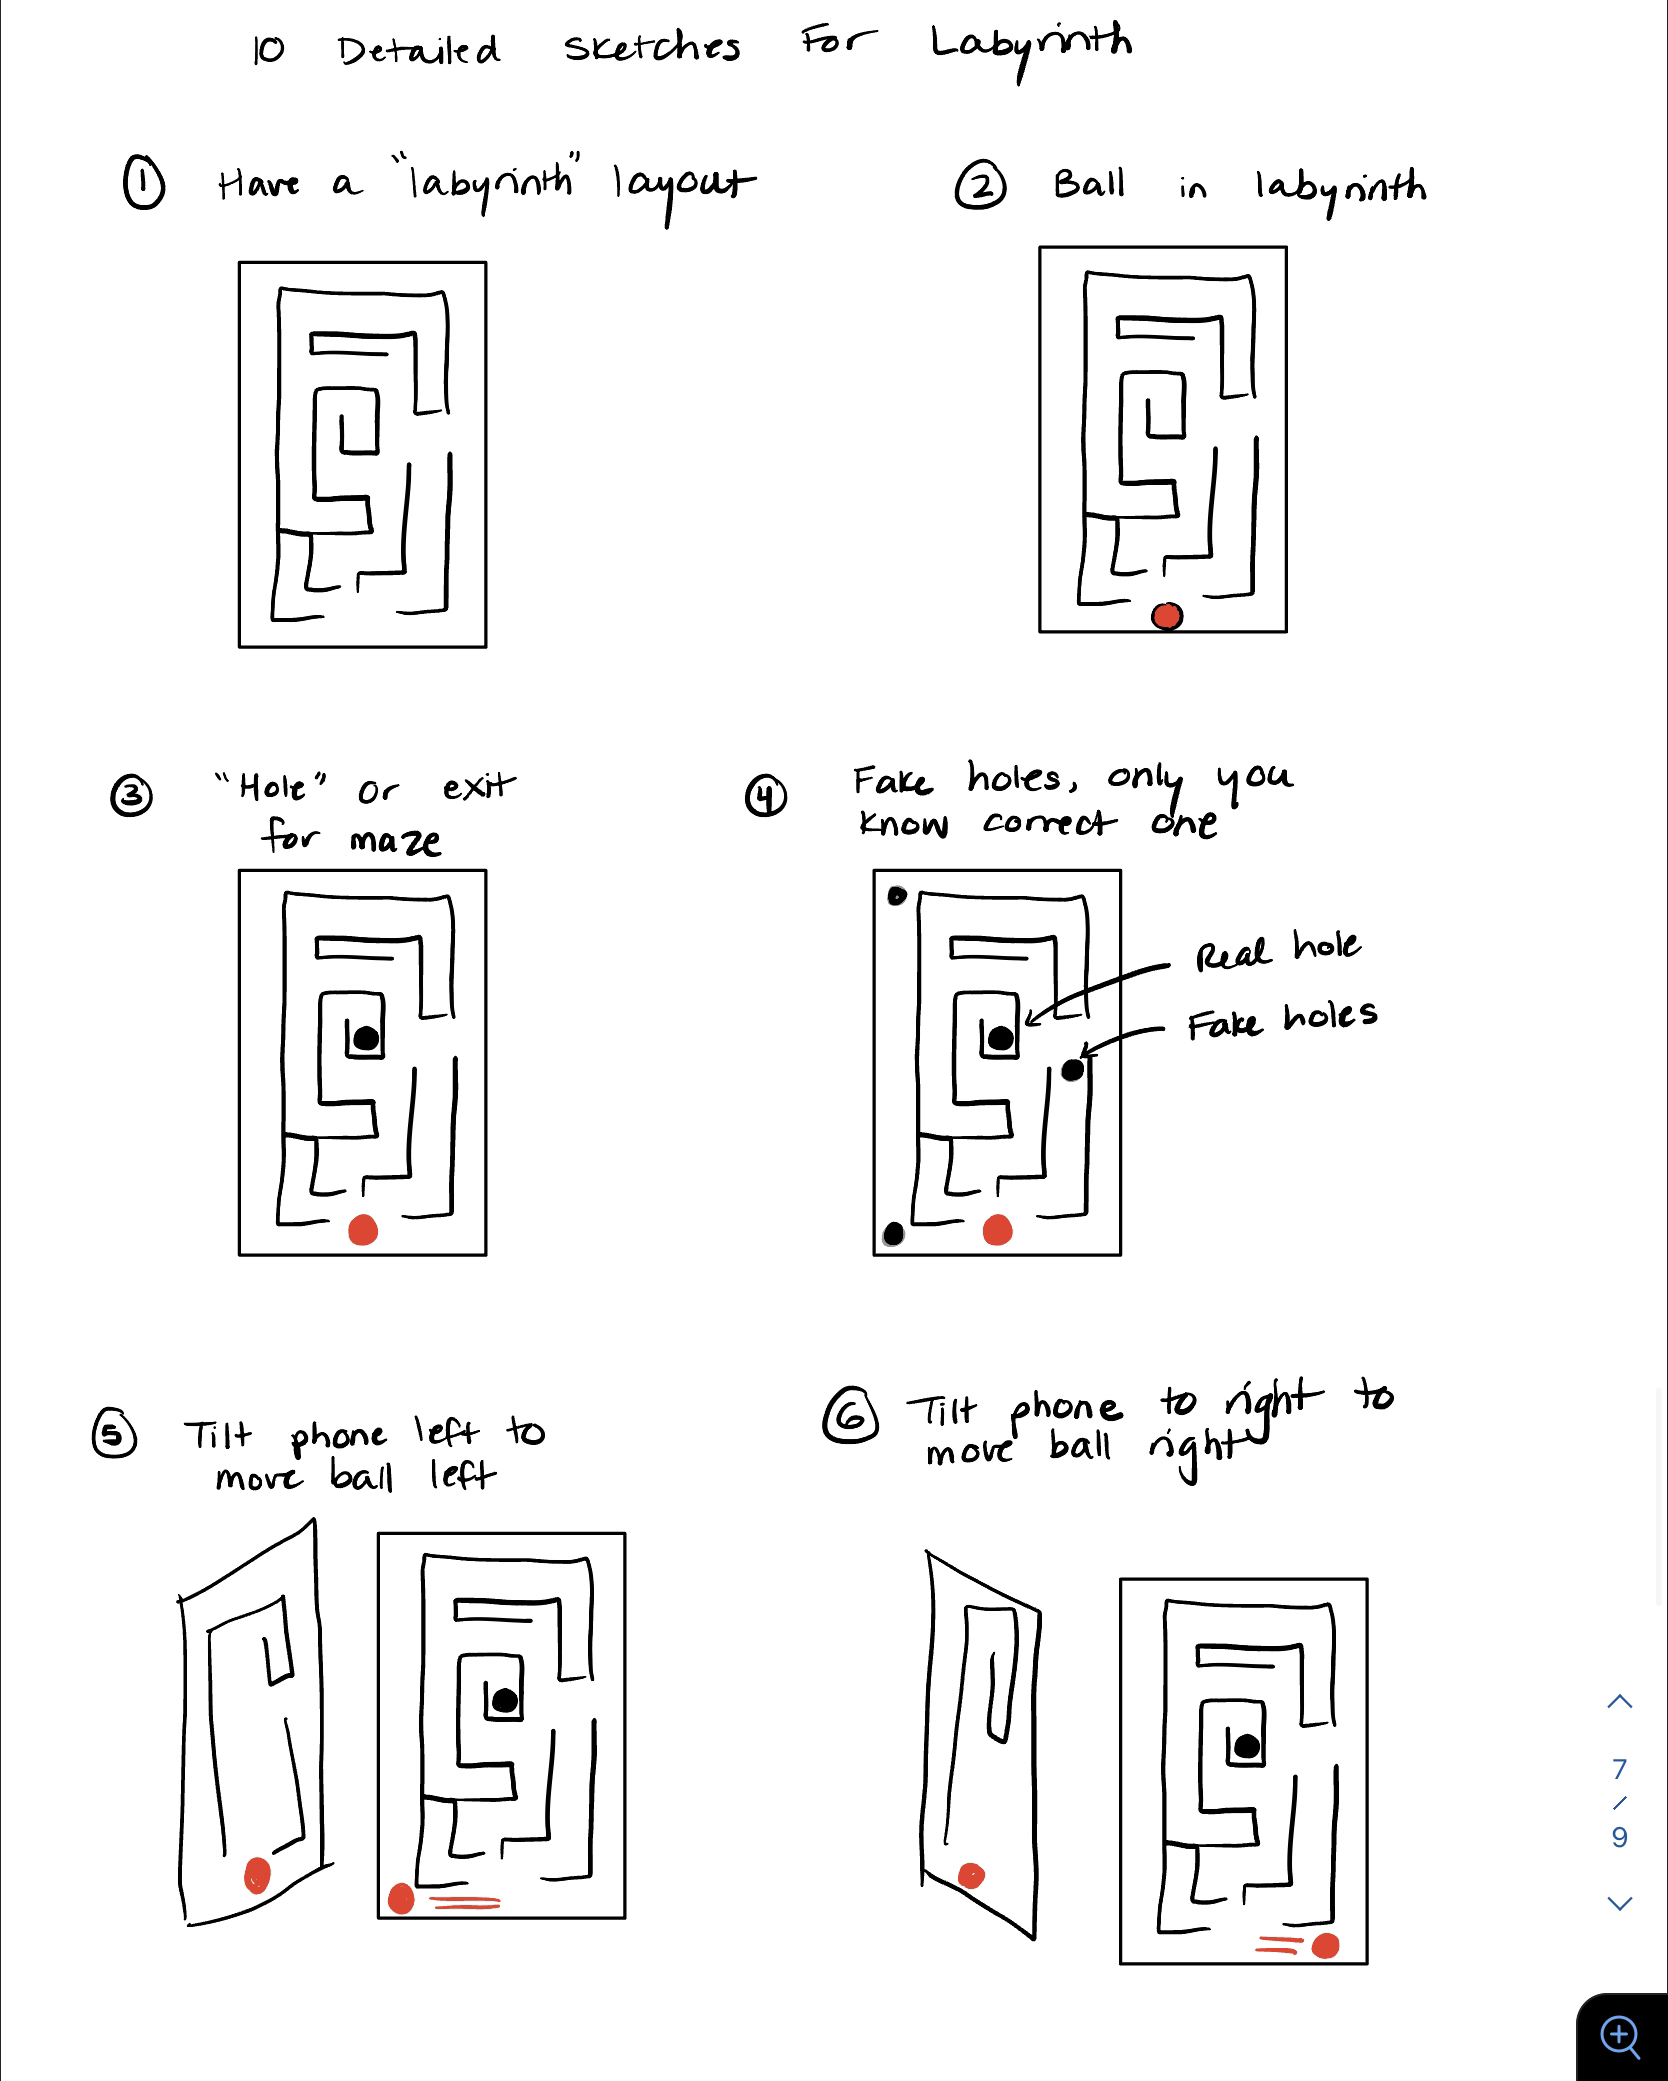 10 Detailed Sketches For Labyrinth
① Have a "labyrinth" layout
② Ball in labyrinth
③ "Hole" or exit
for maze
④ Fake holes, only you
know correct one
Real hole
Fake holes
⑤ Tilt phone left to
move ball left
⑥ Tilt phone to right to
move ball right
7
/
9